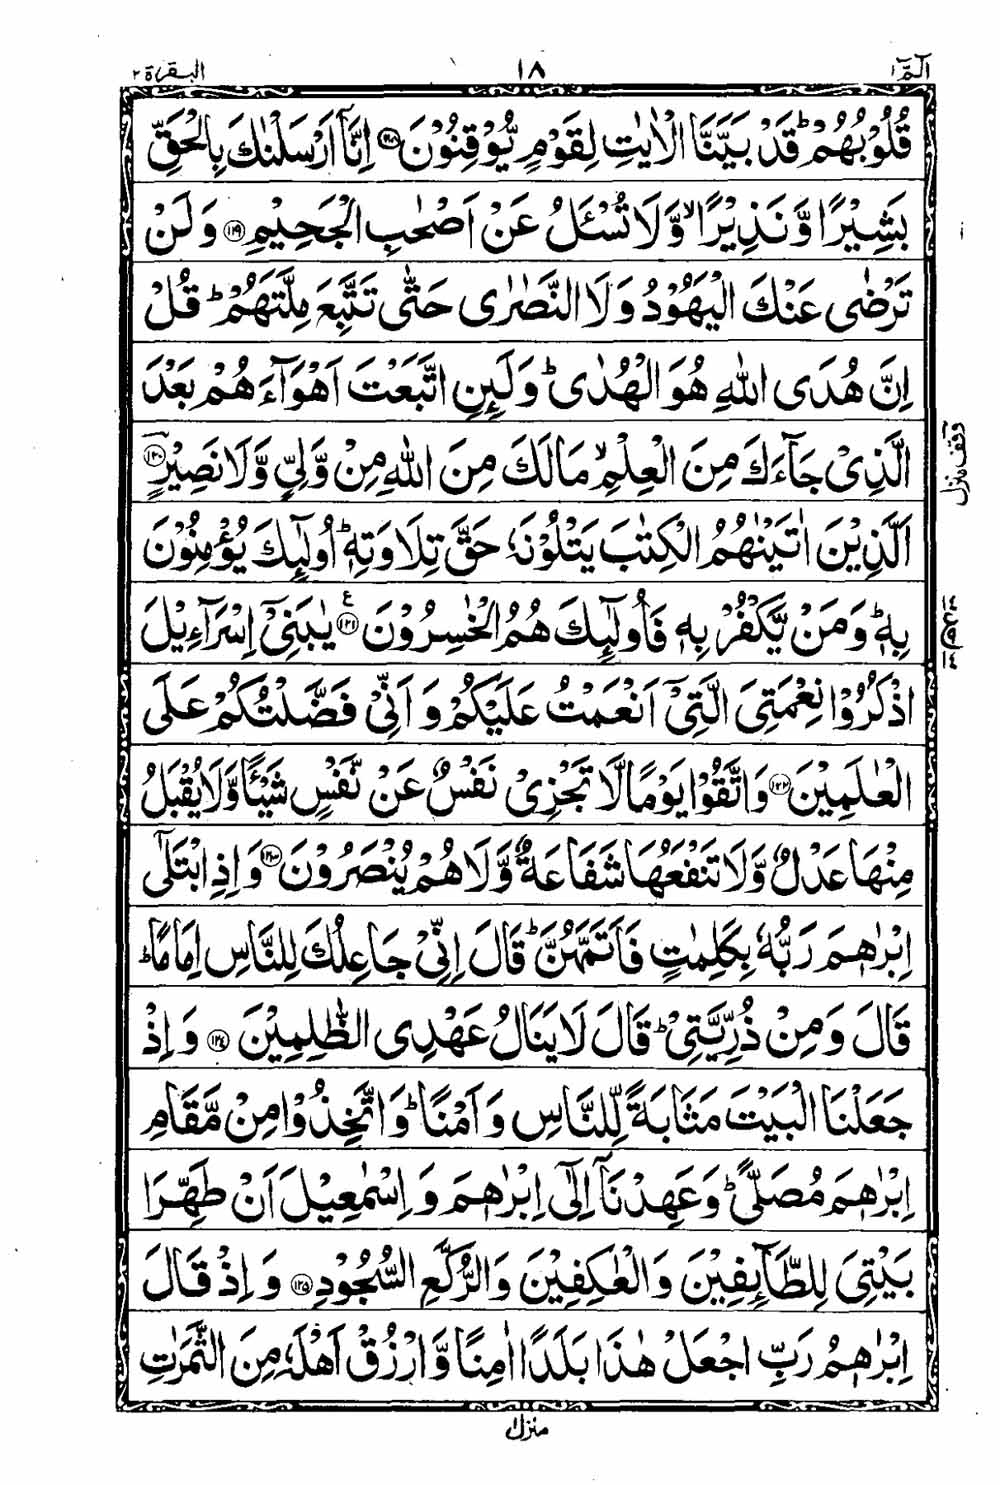 الٓمّٓ ١ ١٨ البقرة ٢
قُلُوْبُهُمْ ؕ قَدْ بَيَّنَّا الْاٰيٰتِ لِقَوْمٍ يُّوْقِنُوْنَ ﴿۱۱۸﴾ اِنَّاۤ اَرْسَلْنٰكَ بِالْحَقِّ
بَشِيْرًا وَّ نَذِيْرًا ۙ وَّ لَا تُسْـَٔلُ عَنْ اَصْحٰبِ الْجَحِيْمِ ﴿۱۱۹﴾ وَ لَنْ
تَرْضٰى عَنْكَ الْيَهُوْدُ وَ لَا النَّصٰرٰى حَتّٰى تَتَّبِعَ مِلَّتَهُمْ ؕ قُلْ
اِنَّ هُدَى اللّٰهِ هُوَ الْهُدٰى ؕ وَ لَئِنِ اتَّبَعْتَ اَهْوَآءَهُمْ بَعْدَ
الَّذِىْ جَآءَكَ مِنَ الْعِلْمِ ۙ مَا لَكَ مِنَ اللّٰهِ مِنْ وَّلِىٍّ وَّ لَا نَصِيْرٍ ﴿۱۲۰﴾
وقف منزل
اَلَّذِيْنَ اٰتَيْنٰهُمُ الْكِتٰبَ يَتْلُوْنَهٗ حَقَّ تِلَاوَتِهٖ ؕ اُولٰٓئِكَ يُؤْمِنُوْنَ
بِهٖ ؕ وَ مَنْ يَّكْفُرْ بِهٖ فَاُولٰٓئِكَ هُمُ الْخٰسِرُوْنَ ﴿۱۲۱﴾ ع يٰبَنِىْۤ اِسْرَآءِيْلَ
اذْكُرُوْا نِعْمَتِىَ الَّتِىْۤ اَنْعَمْتُ عَلَيْكُمْ وَ اَنِّىْ فَضَّلْتُكُمْ عَلَى
الْعٰلَمِيْنَ ﴿۱۲۲﴾ وَ اتَّقُوْا يَوْمًا لَّا تَجْزِىْ نَفْسٌ عَنْ نَّفْسٍ شَيْـًٔا وَّ لَا يُقْبَلُ
مِنْهَا عَدْلٌ وَّ لَا تَنْفَعُهَا شَفَاعَةٌ وَّ لَا هُمْ يُنْصَرُوْنَ ﴿۱۲۳﴾ وَ اِذِ ابْتَلٰٓى
اِبْرٰهٖمَ رَبُّهٗ بِكَلِمٰتٍ فَاَتَمَّهُنَّ ؕ قَالَ اِنِّىْ جَاعِلُكَ لِلنَّاسِ اِمَامًا ؕ
قَالَ وَ مِنْ ذُرِّيَّتِىْ ؕ قَالَ لَا يَنَالُ عَهْدِى الظّٰلِمِيْنَ ﴿۱۲۴﴾ وَ اِذْ
جَعَلْنَا الْبَيْتَ مَثَابَةً لِّلنَّاسِ وَ اَمْنًا ؕ وَ اتَّخِذُوْا مِنْ مَّقَامِ
اِبْرٰهٖمَ مُصَلًّى ؕ وَ عَهِدْنَاۤ اِلٰٓى اِبْرٰهٖمَ وَ اِسْمٰعِيْلَ اَنْ طَهِّرَا
بَيْتِىَ لِلطَّآئِفِيْنَ وَ الْعٰكِفِيْنَ وَ الرُّكَّعِ السُّجُوْدِ ﴿۱۲۵﴾ وَ اِذْ قَالَ
اِبْرٰهٖمُ رَبِّ اجْعَلْ هٰذَا بَلَدًا اٰمِنًا وَّ ارْزُقْ اَهْلَهٗ مِنَ الثَّمَرٰتِ
منزل ١